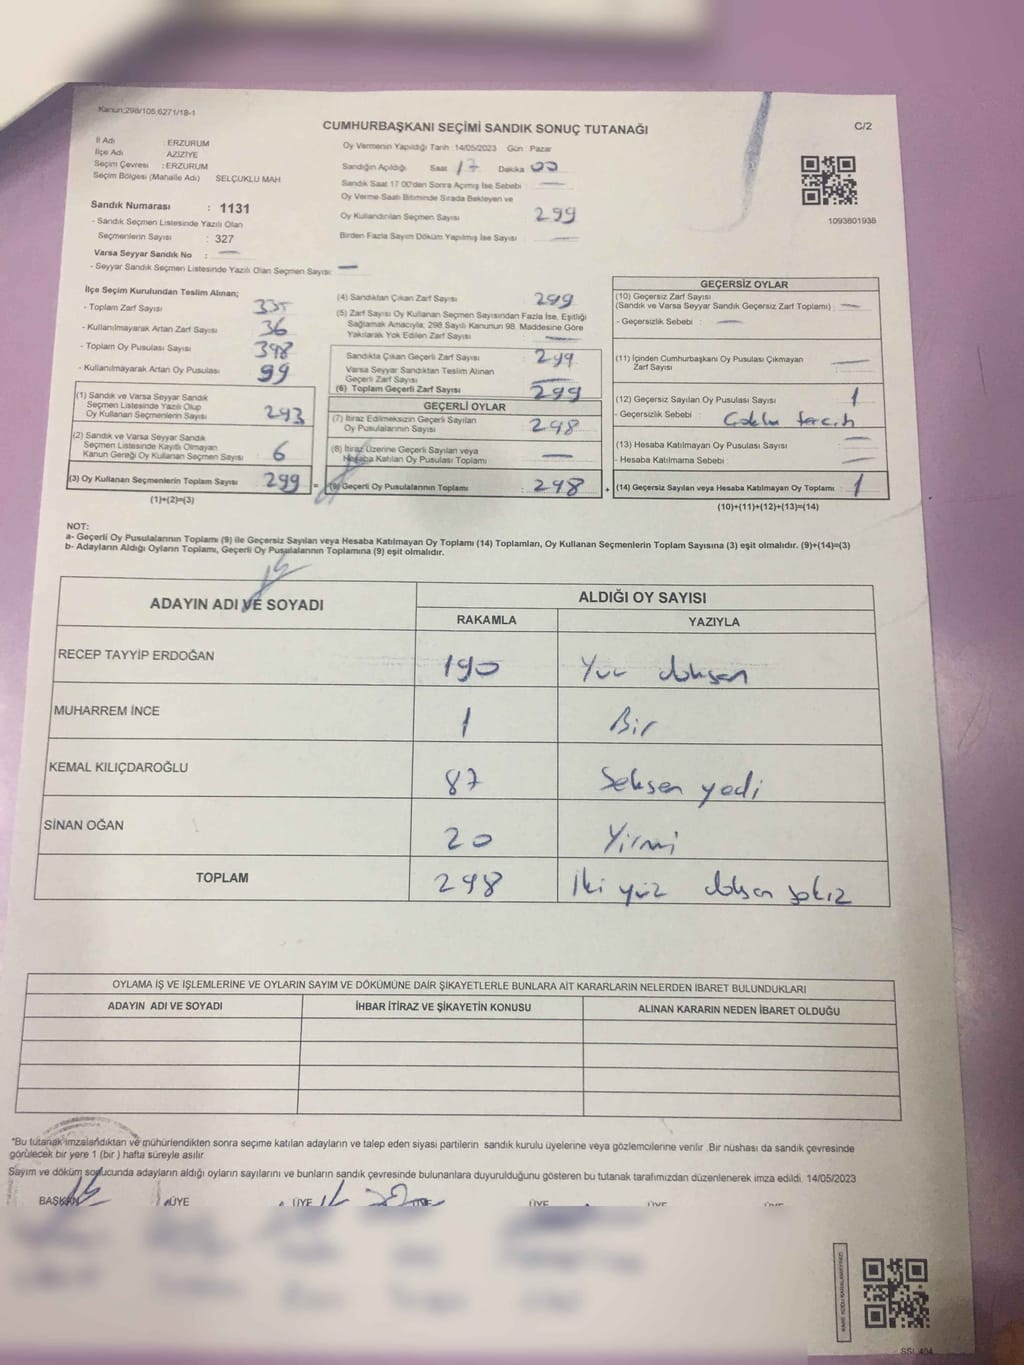 Kanun:298/105,6271/18-1
CUMHURBAŞKANI SEÇİMİ SANDIK SONUÇ TUTANAĞI
C/2
İl Adı ERZURUM
İlçe Adı AZİZİYE
Seçim Çevresi : ERZURUM
Seçim Bölgesi (Mahalle Adı) SELÇUKLU MAH
Sandık Numarası : 1131
- Sandık Seçmen Listesinde Yazılı Olan
Seçmenlerin Sayısı : 327
Varsa Seyyar Sandık No : —
- Seyyar Sandık Seçmen Listesinde Yazılı Olan Seçmen Sayısı: —
Oy Vermenin Yapıldığı Tarih :14/05/2023 Gün : Pazar
Sandığın Açıldığı Saat 17 Dakika 00
Sandık Saat 17:00'den Sonra Açımış İse Sebebi : —
Oy Verme Saati Bitiminde Sırada Bekleyen ve
Oy Kullandırılan Seçmen Sayısı 299
Birden Fazla Sayım Döküm Yapılmış İse Sayısı : —
1093801938
İlçe Seçim Kurulundan Teslim Alınan;
- Toplam Zarf Sayısı 335
- Kullanılmayarak Artan Zarf Sayısı 36
- Toplam Oy Pusulası Sayısı 398
- Kullanılmayarak Artan Oy Pusulası 99
(1) Sandık ve Varsa Seyyar Sandık
Seçmen Listesinde Yazılı Olup
Oy Kullanan Seçmenlerin Sayısı 293
(2) Sandık ve Varsa Seyyar Sandık
Seçmen Listesinde Kayıtlı Olmayan
Kanun Gereği Oy Kullanan Seçmen Sayısı 6
(3) Oy Kullanan Seçmenlerin Toplam Sayısı 299 =
(1)+(2)=(3)
(4) Sandıktan Çıkan Zarf Sayısı 299
(5) Zarf Sayısı Oy Kullanan Seçmen Sayısından Fazla İse, Eşitliği
Sağlamak Amacıyla; 298 Sayılı Kanunun 98. Maddesine Göre
Yakılarak Yok Edilen Zarf Sayısı
Sandıkta Çıkan Geçerli Zarf Sayısı 299
Varsa Seyyar Sandıktan Teslim Alınan
Geçerli Zarf Sayısı —
(6) Toplam Geçerli Zarf Sayısı 299
GEÇERLİ OYLAR
(7) İtiraz Edilmeksizin Geçerli Sayılan
Oy Pusulalarının Sayısı : 298
(8) İtiraz Üzerine Geçerli Sayılan veya
Hesaba Katılan Oy Pusulası Toplamı —
(9) Geçerli Oy Pusulalarının Toplamı : 298 +
GEÇERSİZ OYLAR
(10) Geçersiz Zarf Sayısı
(Sandık ve Varsa Seyyar Sandık Geçersiz Zarf Toplamı) : —
- Geçersizlik Sebebi : —
(11) İçinden Cumhurbaşkanı Oy Pusulası Çıkmayan
Zarf Sayısı —
(12) Geçersiz Sayılan Oy Pusulası Sayısı 1
- Geçersizlik Sebebi : tercih
(13) Hesaba Katılmayan Oy Pusulası Sayısı —
- Hesaba Katılmama Sebebi —
(14) Geçersiz Sayılan veya Hesaba Katılmayan Oy Toplamı : 1
(10)+(11)+(12)+(13)=(14)
NOT:
a- Geçerli Oy Pusulalarının Toplamı (9) ile Geçersiz Sayılan veya Hesaba Katılmayan Oy Toplamı (14) Toplamları, Oy Kullanan Seçmenlerin Toplam Sayısına (3) eşit olmalıdır. (9)+(14)=(3)
b- Adayların Aldığı Oyların Toplamı, Geçerli Oy Pusulalarının Toplamına (9) eşit olmalıdır.
ADAYIN ADI VE SOYADI ALDIĞI OY SAYISI
RAKAMLA YAZIYLA
RECEP TAYYİP ERDOĞAN 190 Yüz doksan
MUHARREM İNCE 1 Bir
KEMAL KILIÇDAROĞLU 87 Seksen yedi
SİNAN OĞAN 20 Yirmi
TOPLAM 298 İki yüz doksan sekiz
OYLAMA İŞ VE İŞLEMLERİNE VE OYLARIN SAYIM VE DÖKÜMÜNE DAİR ŞİKAYETLERLE BUNLARA AİT KARARLARIN NELERDEN İBARET BULUNDUKLARI
ADAYIN ADI VE SOYADI İHBAR İTİRAZ VE ŞİKAYETİN KONUSU ALINAN KARARIN NEDEN İBARET OLDUĞU
*Bu tutanak imzalandıktan ve mühürlendikten sonra seçime katılan adayların ve talep eden siyasi partilerin sandık kurulu üyelerine veya gözlemcilerine verilir. Bir nüshası da sandık çevresinde
görülecek bir yere 1 (bir ) hafta süreyle asılır.
Sayım ve döküm sonucunda adayların aldığı oyların sayılarını ve bunların sandık çevresinde bulunanlara duyurulduğunu gösteren bu tutanak tarafımızdan düzenlenerek imza edildi. 14/05/2023
BAŞKAN ÜYE ÜYE ÜYE ÜYE ÜYE